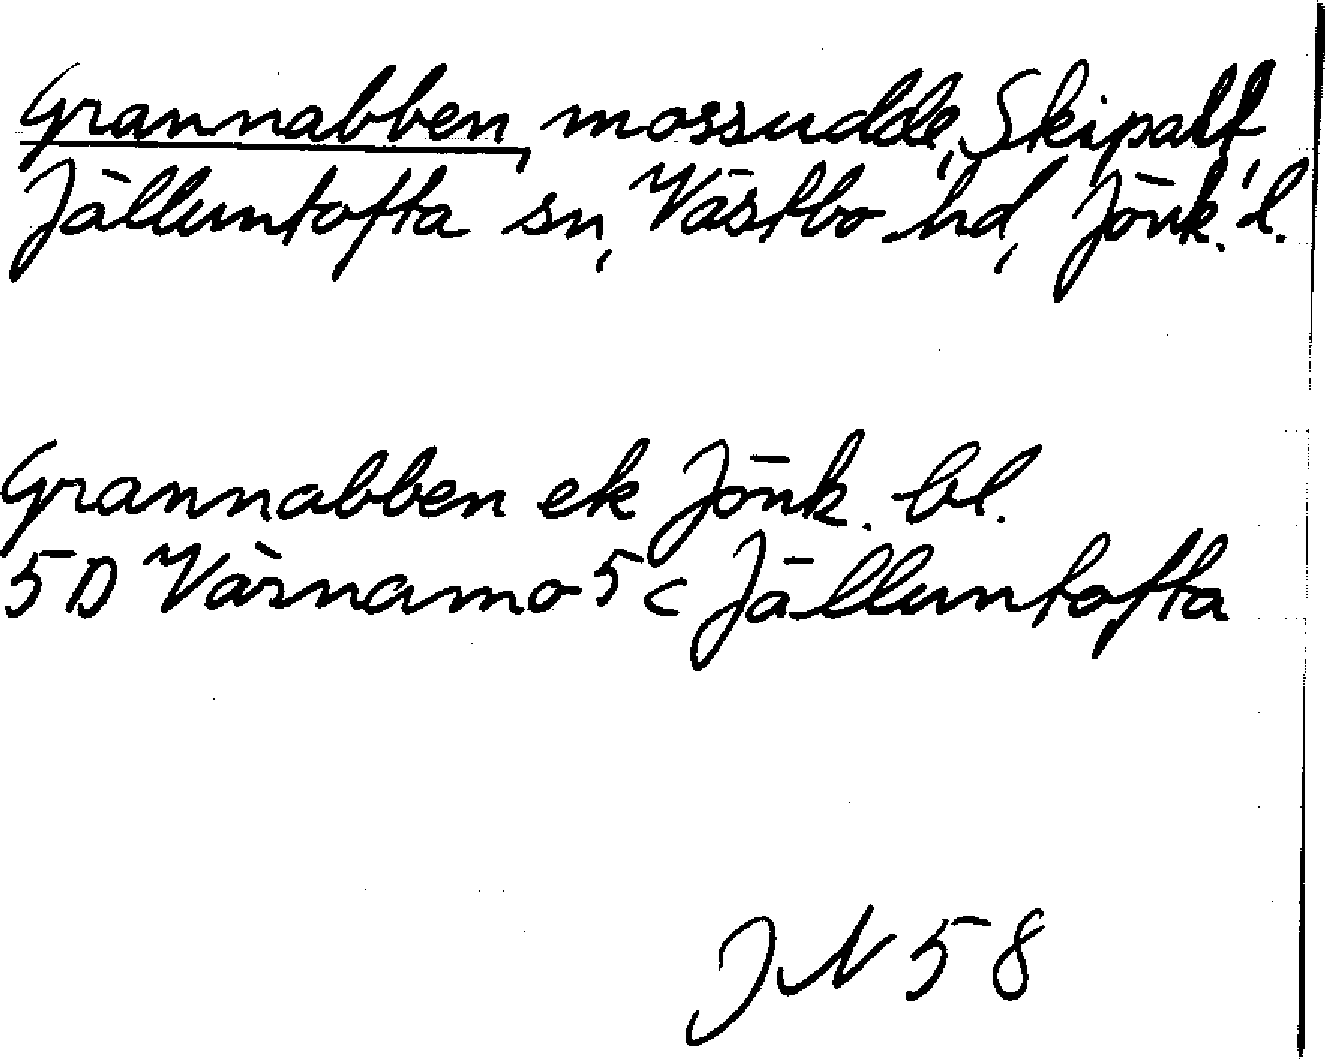 Grannabben, mossudde, Skipalt,
Jälluntofta sn, Västbo hd, Jönk. l.
Grannabben ek Jönk. bl.
5D Värnamo 5c Jälluntofta
JN 58